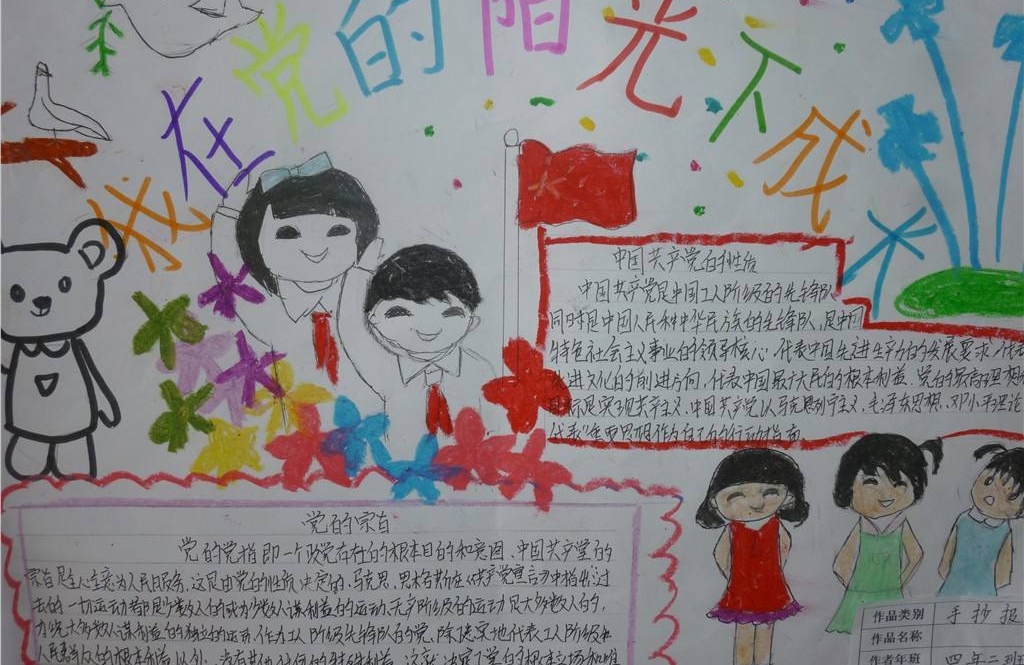 我在党的阳光下成
中国共产党的性质
中国共产党是中国工人阶级的先锋队
同时是中国人民和中华民族的先锋队,是中国
特色社会主义事业的领导核心,代表中国先进生产力的发展要求,代表
先进文化的前进方向,代表中国最广大人民的根本利益。党的最高理想
目标是实现共产主义。中国共产党以马克思列宁主义、毛泽东思想、邓小平理论
代表"重要思想作为自己的行动指南
党的宗旨
党的党指即一个政党存在的根本目的和意图、中国共产党的
宗旨是全心全意为人民服务。这是由党的性质决定的,马克思、恩格斯在《共产党宣言》中指出:过
去的一切运动都是少数人的或为少数人谋利益的运动。无产阶级的运动是大多数人的,
为绝大多数人谋利益的独立的运动。作为工人阶级先锋队的党,除了忠实地代表工人阶级和
人民群众的根本利益以外,没有其他任何的特殊利益。这就决定了党的根本立场和
作品类别 手抄报
作品名称
作者年班 四年二班